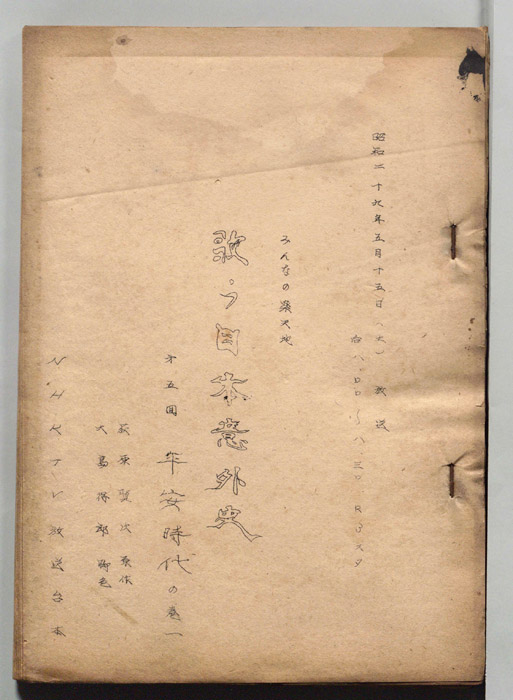 昭和二十九年五月十五日(土)放送
后八.〇〇〜八.三〇 Rスタ
みんなの
歌う日本意外史
第五回 平安時代の巻一
萩原賢次 原作
大島得郎 脚色
NHKTV放送台本